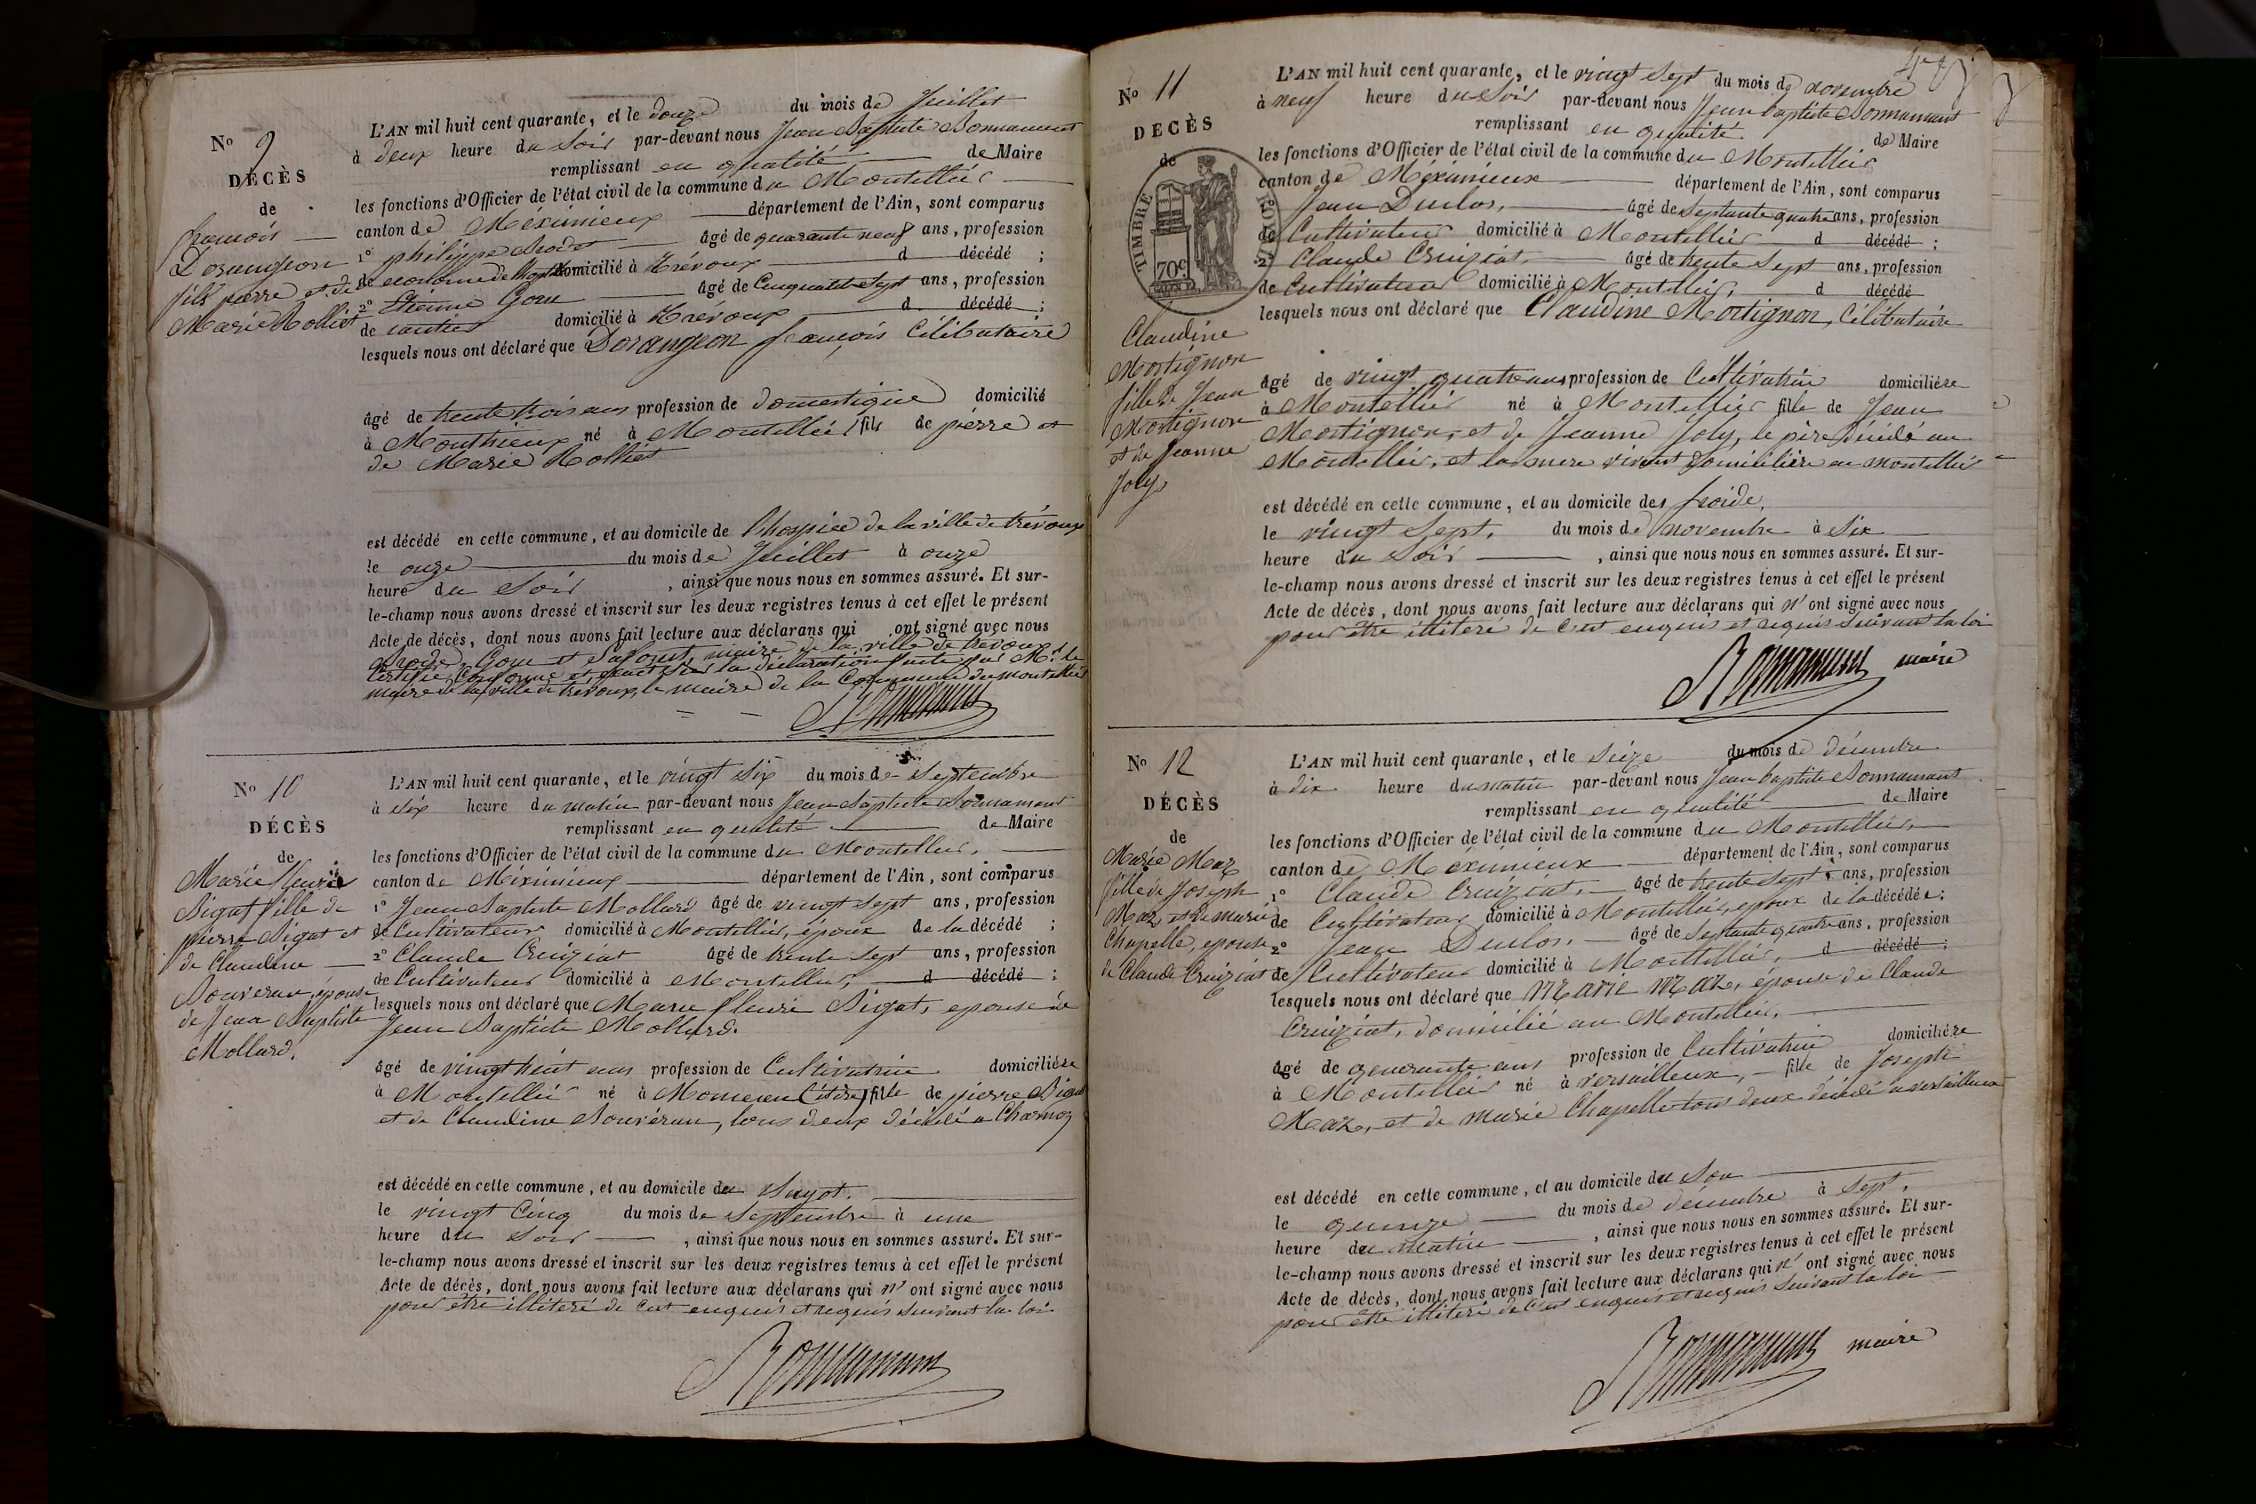 No 9
DÉCÈS
de
françois
Dorangeon
fils pierre et de
Marie Rolliet
L'AN mil huit cent quarante, et le douze du mois de Juillet
à deux heure du Soir par-devant nous Jean Baptiste Bonnamant
remplissant en qualité de Maire
les fonctions d'Officier de l'état civil de la commune du Montellier
canton de Méximieux département de l'Ain, sont comparus
1o philippe âgé de quarante neuf ans, profession
de économe de domicilié à Trévoux d décédé ;
2o Etienne Gom âgé de Cinquante Sept ans, profession
de domicilié à Trévoux d décédé ;
lesquels nous ont déclaré que Dorangeon françois Célibataire
âgé de trente trois ans profession de domestique domicilié
à Monthieux né à Montellier fils de pierre et
de Marie Rolliet
est décédé en cette commune, et au domicile de l'hospice de la ville de trévoux
le onze du mois de Juillet à onze
heure du Soir , ainsi que nous nous en sommes assuré. Et sur-
le-champ nous avons dressé et inscrit sur les deux registres tenus à cet effet le présent
Acte de décès, dont nous avons fait lecture aux déclarans qui ont signé avec nous
Gom et maire de la ville de trévoux
Certifié Conforme et exact sur la déclaration faite par Mr. le
maire de la ville de trévoux, le maire de la Commune du montellier
No 10
DÉCÈS
de
Marie fleurie
Bigat fille de
pierre Bigat et
de Claudine
Bouverun, épouse
de Jean Baptiste
Mollard.
L'AN mil huit cent quarante, et le vingt Six du mois de Septembre
à Six heure du matin par-devant nous Jean Baptiste Bonnamant
remplissant en qualité de Maire
les fonctions d'Officier de l'état civil de la commune du Montellier,
canton de Méximieux département de l'Ain, sont comparus
1o Jean Baptiste Mollard âgé de vingt sept ans, profession
de Cultivateur domicilié à Montellier, époux de la décédé ;
2o Claude Cruiziat âgé de trente Sept ans, profession
de Cultivateur domicilié à Montellier, d décédé ;
lesquels nous ont déclaré que Marie fleurie Bigat, epouse de
Jean Baptiste Mollard.
âgé de vingt huit ans profession de Cultivatrice domiciliére
à Montellier né à fille de pierre Bigat
et de Claudine Bouverun, tous deux décédé a Charnoz
est décédé en cette commune, et au domicile du
le vingt Cinq du mois de Septembre à une
heure du Soir , ainsi que nous nous en sommes assuré. Et sur-
le-champ nous avons dressé et inscrit sur les deux registres tenus à cet effet le présent
Acte de décès, dont nous avons fait lecture aux déclarans qui n' ont signé avec nous
pour être illiteré de Cest enquis et requis Suivant la loi
No 11
DÉCÈS
de
TIMBRE ROYAL
70c
Claudine
Mortignon
fille de Jean
Mortignon
et de Jeanne
Joly
L'AN mil huit cent quarante, et le vingt Sept du mois de novembre
à neuf heure du Soir par-devant nous Jean baptiste Bonnamant
remplissant en qualité de Maire
les fonctions d'Officier de l'état civil de la commune du Montellier
canton de Méximieux département de l'Ain, sont comparus
1o Jean Duclos, âgé de Septante quatre ans, profession
de Cultivateur domicilié à Montellier d décédé ;
2o Claude Cruiziat, âgé de trente Sept ans, profession
de Cultivateur domicilié à Montellier, d décédé
lesquels nous ont déclaré que Claudine Mortignon, Célibataire
âgé de vingt quatre ans profession de Cultivatrice domiciliére
à Montellier né à Montellier fille de Jean
Mortignon, et de Jeanne Joly, le père décédé au
Montellier, et la mere vivent domiciliére au montellier
est décédé en cette commune, et au domicile des froide,
le vingt Sept, du mois de novembre à Six
heure du Soir , ainsi que nous nous en sommes assuré. Et sur-
le-champ nous avons dressé et inscrit sur les deux registres tenus à cet effet le présent
Acte de décès, dont nous avons fait lecture aux déclarans qui n' ont signé avec nous
pour être illiteré de Cest enquis et requis Suivant la loi
Bonnamant maire
No 12
DÉCÈS
de
Marie Maz
fille de Joseph
Maz, et de marie
Chapelle, epouse
de Claude Cruiziat
L'AN mil huit cent quarante, et le Seize du mois de décembre
à dix heure du matin par-devant nous Jean baptiste Bonnamant
remplissant en qualité de Maire
les fonctions d'Officier de l'état civil de la commune du Montellier,
canton de Méximieux département de l'Ain, sont comparus
1o Claude Cruiziat, âgé de trente Sept ans, profession
de Cultivateur domicilié à Montellier, epoux de la décédée ;
2o Jean Duclos, âgé de Septante quatre ans, profession
de Cultivateur domicilié à Montellier, d décédé ;
lesquels nous ont déclaré que Marie Maz, épouse de Claude
Cruiziat, domicilié au Montellier,
âgé de quarante ans profession de Cultivatrice domiciliére
à Montellier né à versailleux, fille de Joseph
Maz, et de marie Chapelle tous deux décédé a versailleux
est décédé en cette commune, et au domicile du Son
le quinze du mois de décembre à Sept,
heure du matin , ainsi que nous nous en sommes assuré. Et sur-
le-champ nous avons dressé et inscrit sur les deux registres tenus à cet effet le présent
Acte de décès, dont nous avons fait lecture aux déclarans qui n' ont signé avec nous
pour être illiteré de Cest enquis et requis Suivant la loi
Bonnamant maire